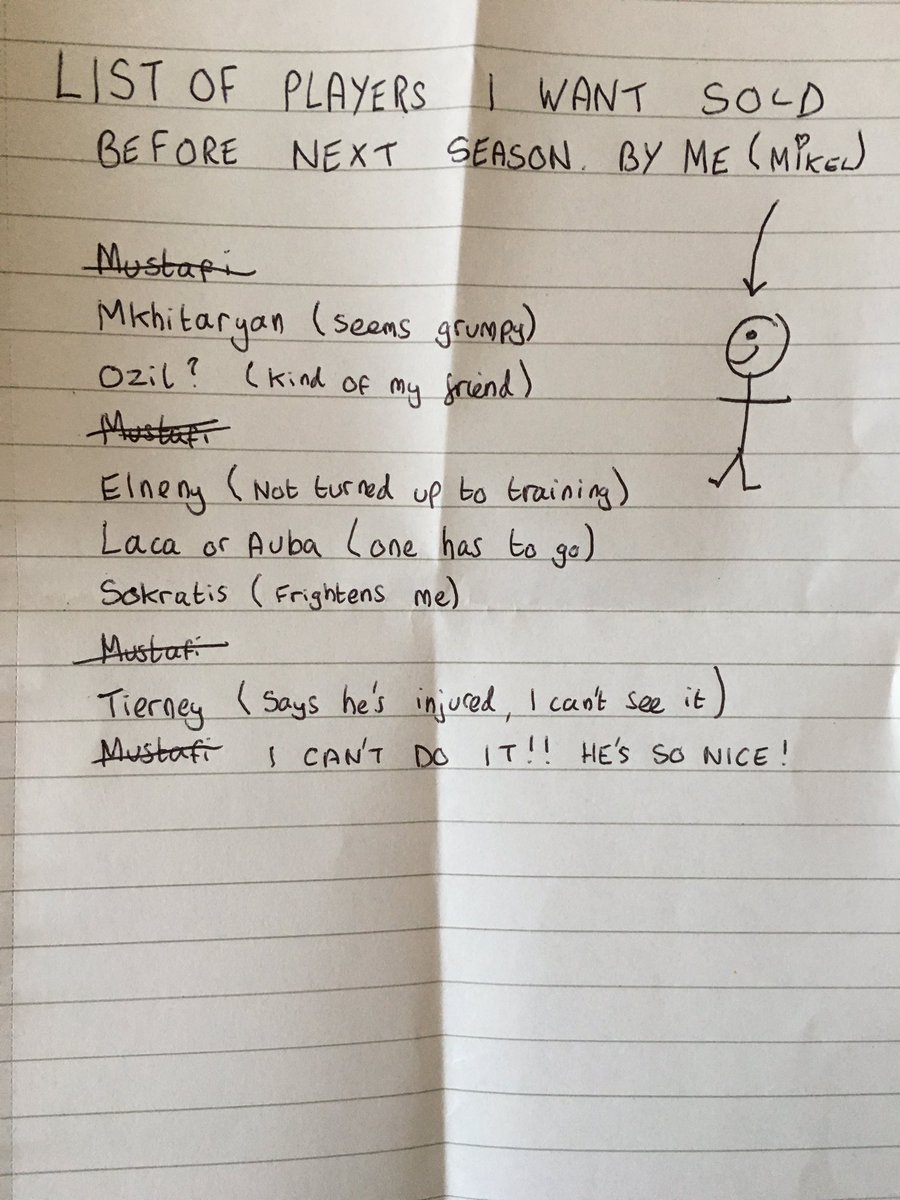 LIST OF PLAYERS I WANT SOLD
BEFORE NEXT SEASON. BY ME (MIKEL)
Mustafi
Mkhitaryan (seems grumpy)
Ozil? (kind of my friend)
Mustafi
Elneny (Not turned up to training)
Laca or Auba (one has to go)
Sokratis (Frightens me)
Mustafi
Tierney (Says he's injured, I can't see it)
Mustafi I CAN'T DO IT!! HE'S SO NICE!